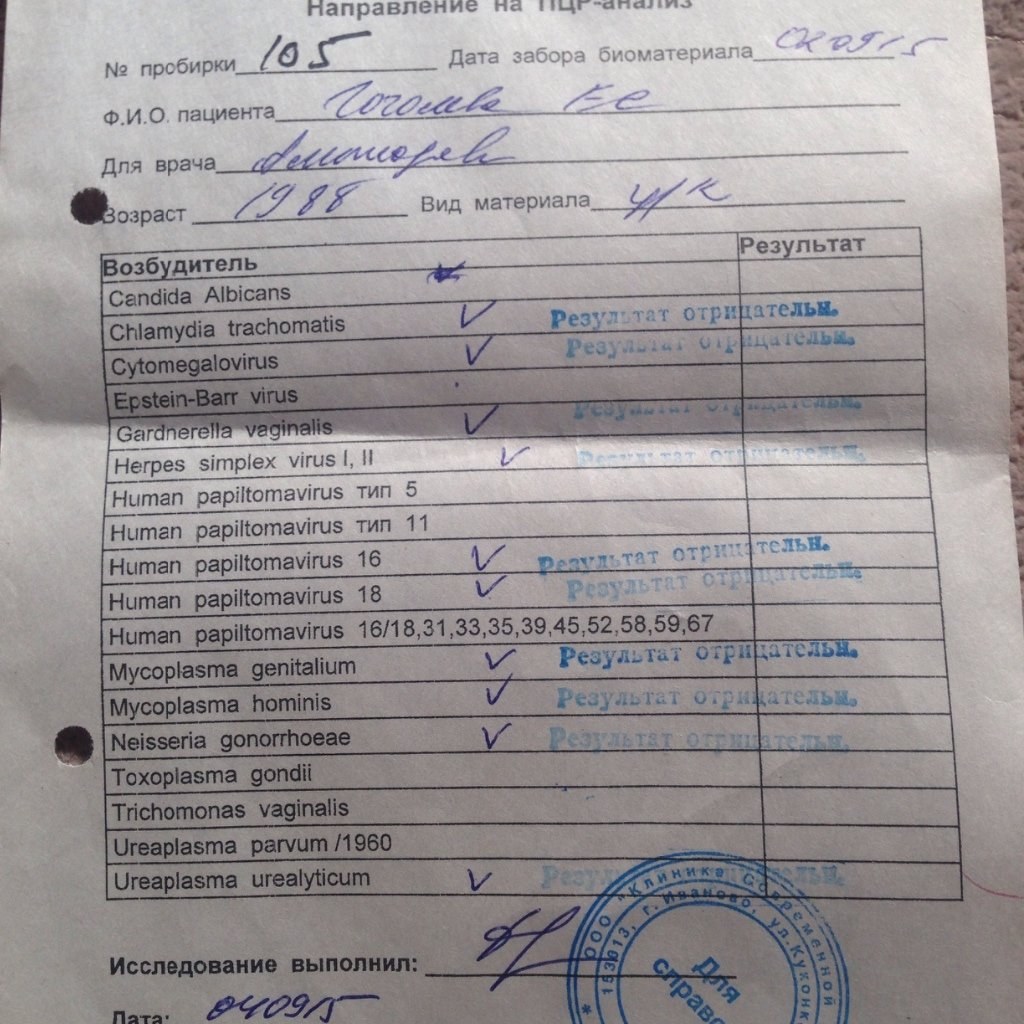 Направление на ПЦР-анализ
№ пробирки 105 Дата забора биоматериала 020915
Ф.И.О. пациента
Для врача
Возраст 1988 Вид материала ц/к
Возбудитель Результат
Candida Albicans
Chlamydia trachomatis Результат отрицательн.
Cytomegalovirus Результат отрицательн.
Epstein-Barr virus
Gardnerella vaginalis Результат отрицательн.
Herpes simplex virus I, II Результат отрицательн.
Human papiltomavirus тип 5
Human papiltomavirus тип 11
Human papiltomavirus 16 Результат отрицательн.
Human papiltomavirus 18 Результат отрицательн.
Human papiltomavirus 16/18,31,33,35,39,45,52,58,59,67
Mycoplasma genitalium Результат отрицательн.
Mycoplasma hominis Результат отрицательн.
Neisseria gonorrhoeae Результат отрицательн.
Toxoplasma gondii
Trichomonas vaginalis
Ureaplasma parvum /1960
Ureaplasma urealyticum Результат отрицательн.
Исследование выполнил:
Дата: 040915
* ООО "Клиника Современной
153013, г. Иваново, ул. Куконк
Для
справо